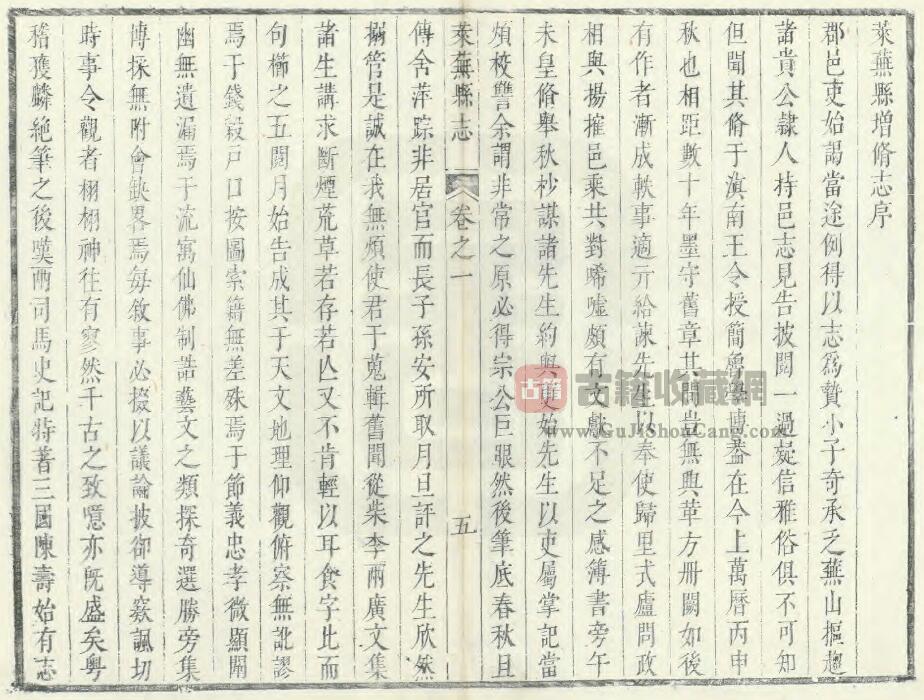 萊蕪縣增脩志序
郡邑吏始謁當途例得以志爲贄小子奇承乏蕪山摳趨
諸貴公隷人持邑志見告披閱一過疑信雅俗俱不可知
但聞其脩于滇南王令授簡會學博葢在今上萬曆丙申
秋也相距數十年墨守舊章其間豈無興革方册闕如後
有作者漸成軼事適亓給諫先生以奉使歸里式廬問政
相與揚搉邑乘共對唏噓頗有文獻不足之感簿書旁午
未皇脩舉秋杪謀諸先生約與更始先生以吏屬掌記當
煩校讐余謂非常之原必得宗公巨眼然後筆底春秋且
萊蕪縣志 卷之一 五
傳舍萍踪非居官而長子孫安所取月旦評之先生欣然
搦管是誠在我無煩使君于蒐輯舊聞從柴李兩廣文集
諸生講求斷煙荒草若存若亾又不肯輕以耳食字比而
句櫛之五閱月始告成其于天文地理仰觀俯察無訛謬
焉于錢穀戸口按圖索籍無差殊焉于節義忠孝微顯闡
幽無遺漏焉于流寓仙佛制誥藝文之類探奇選勝旁集
博採無附會缺畧焉每敘事必掇以議論披郤導窽諷切
時事令觀者栩栩神往有寥然千古之致噫亦旣盛矣粤
稽獲麟絶筆之後嘆兩司馬史記特著三國陳壽始有志
古籍
古籍收藏網
www.GuJiShouCang.com